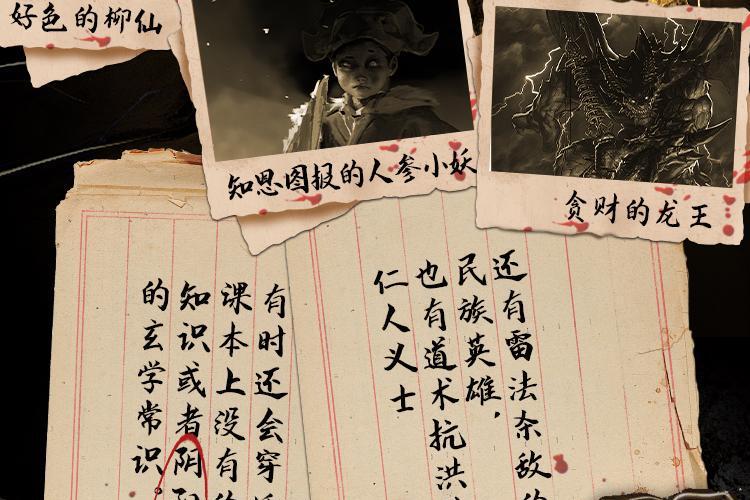 好色的柳仙
知恩图报的人参小妖
贪财的龙王
还有雷法杀敌的
民族英雄,
也有道术抗洪
仁人义士
有时还会穿
课本上没有
知识或者阴
的玄学常识。